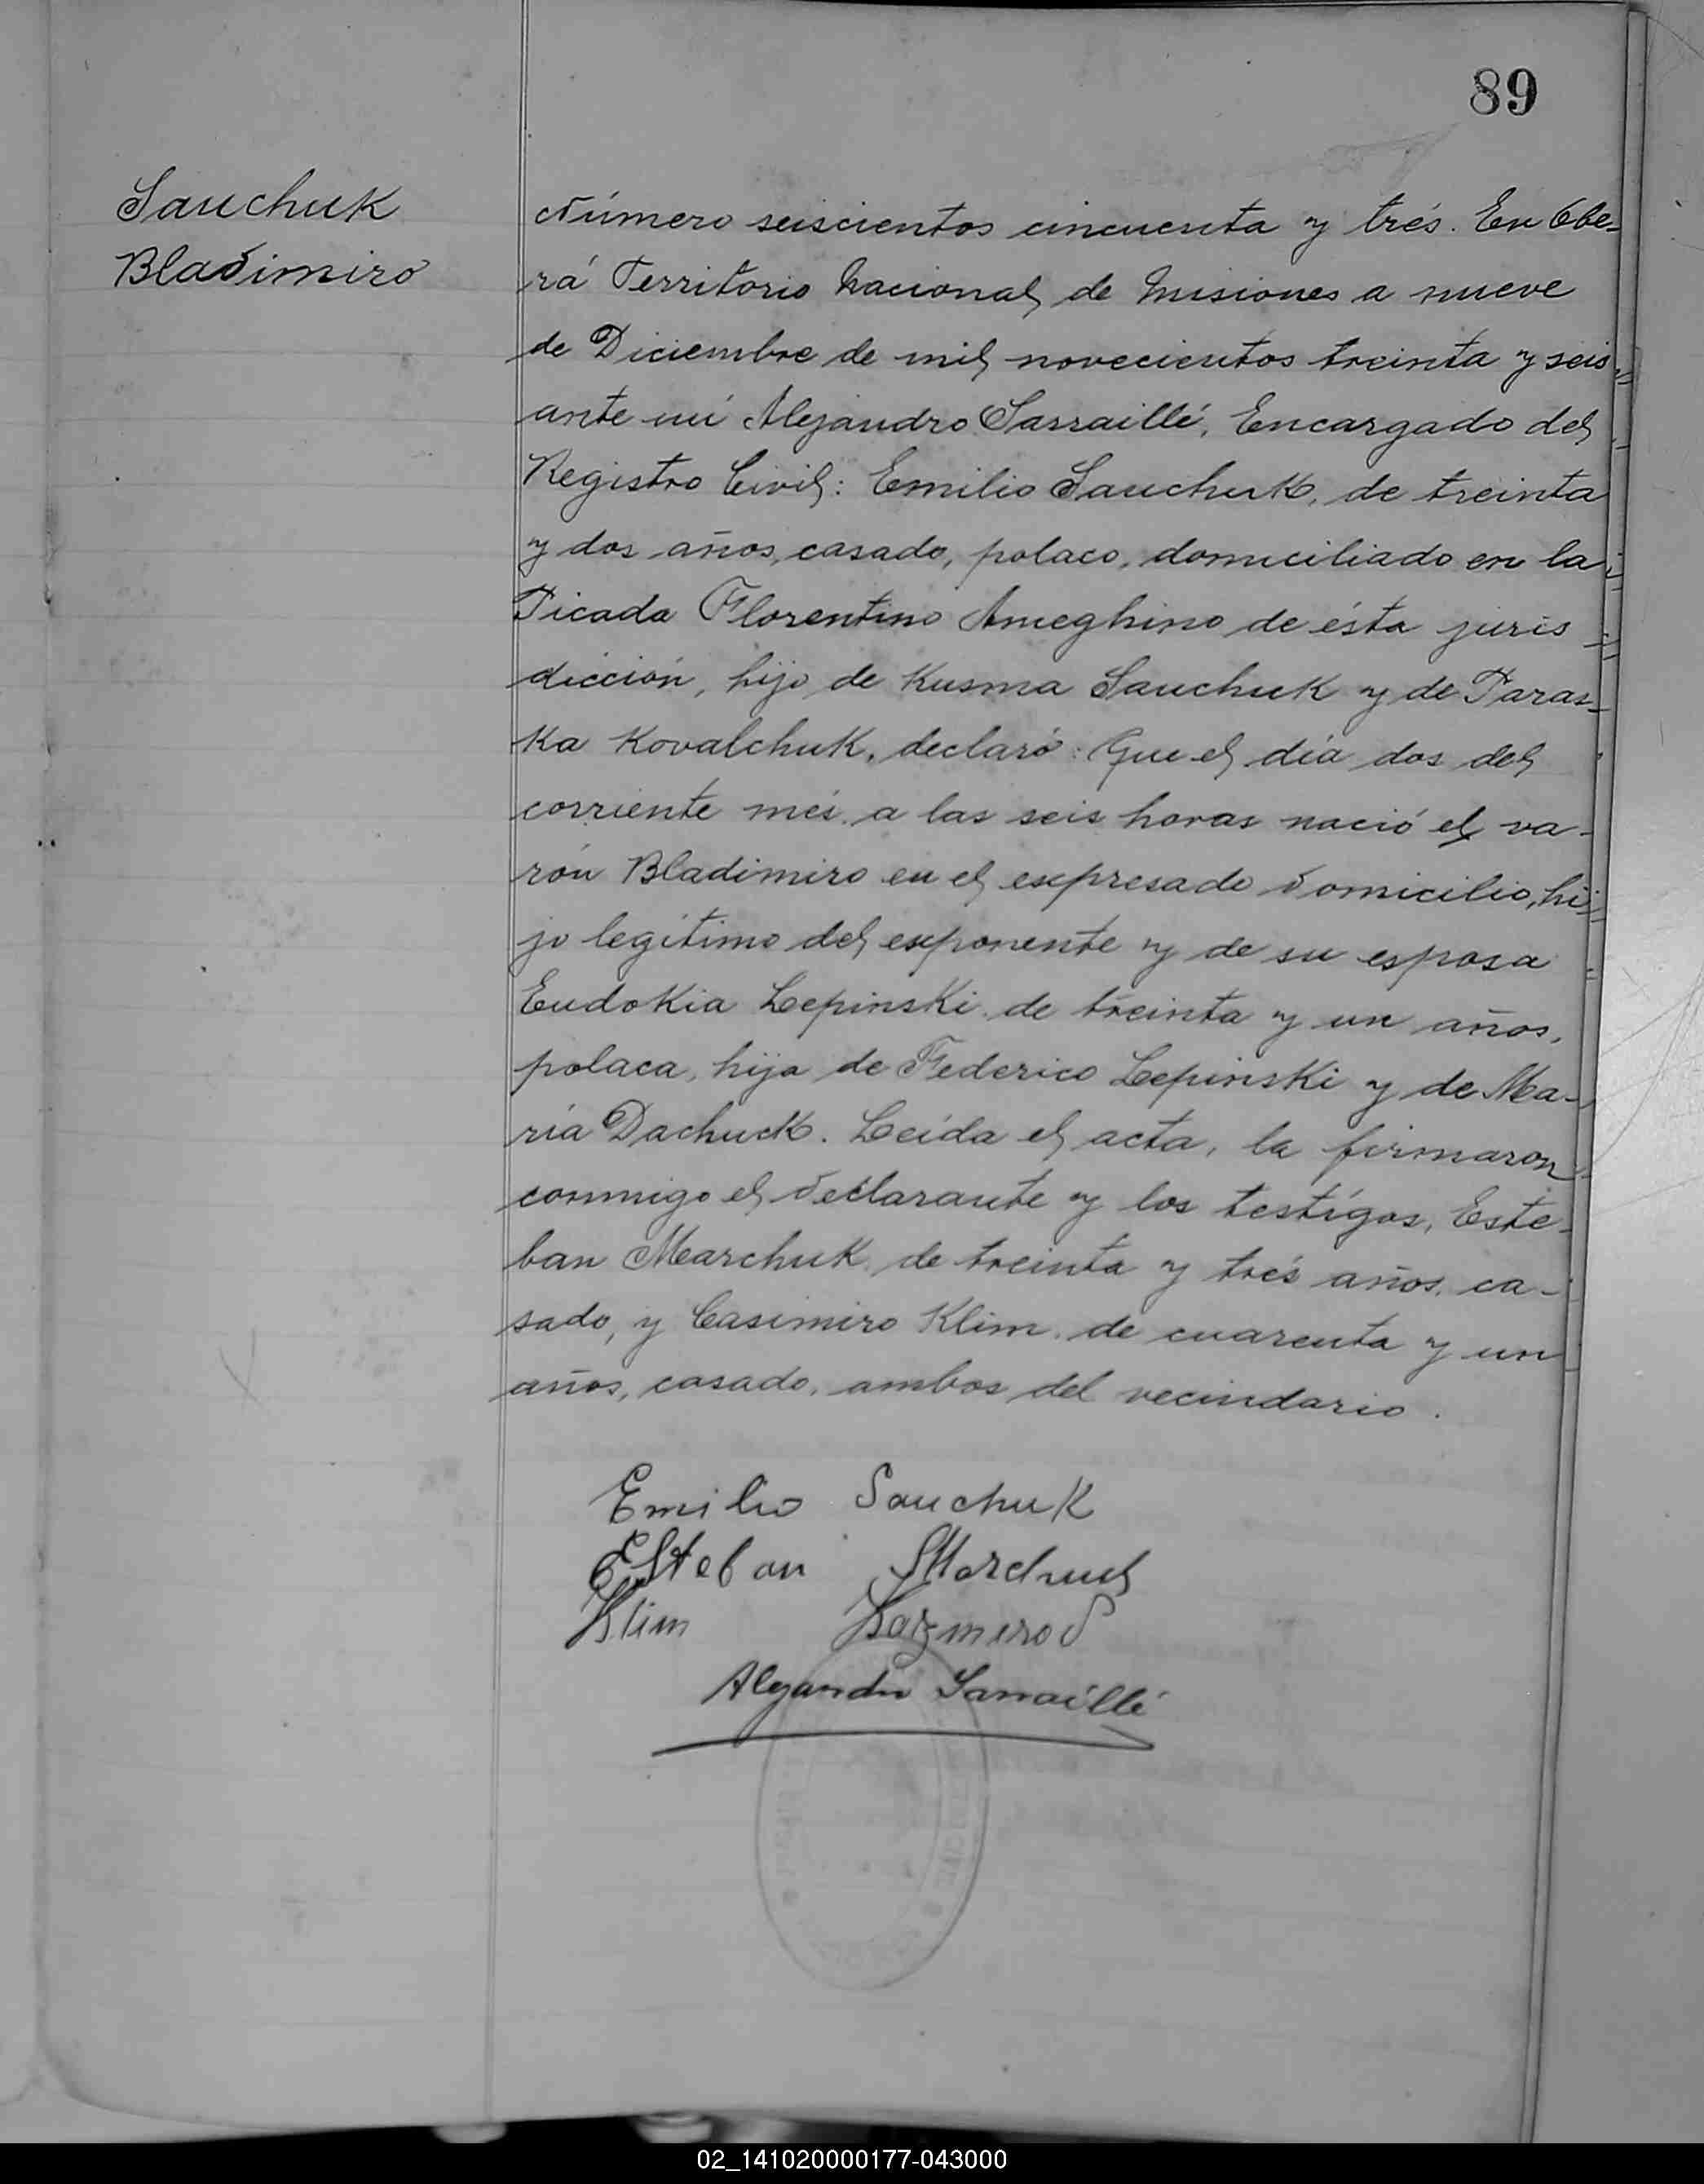 89
Sauchuk
Bladimiro
Número seiscientos cincuenta y trés. En Obe-
rá Territorio Nacional de Misiones a nueve
de Diciembre de mil novecientos treinta y seis
ante mí Alejandro Sarraillé, Encargado del
Registro Civil: Emilio Sauchuk, de treinta
y dos años, casado, polaco, domiciliado en la
Picada Florentino Ameghino de ésta juris
dicción, hijo de Kusma Sauchuk y de Paras-
ka Kovalchuk, declaró: Que el día dos del
corriente més a las seis horas nació el va-
rón Bladimiro en el expresado domicilio, hi-
jo legítimo del exponente y de su esposa
Eudokia Lepinski de treinta y un años,
polaca, hija de Federico Lepinski y de Ma-
ría Dachuck. Leída el acta, la firmaron
conmigo el declarante y los testígos, Este-
ban Marchuk de treinta y trés años, ca-
sado, y Casimiro Klim de cuarenta y un
años, casado, ambos del vecindario.
Emilio Sauchuk
Esteban Marchuk
Klim Kazmiero
Alejandro Sarraillé
02_141020000177-043000